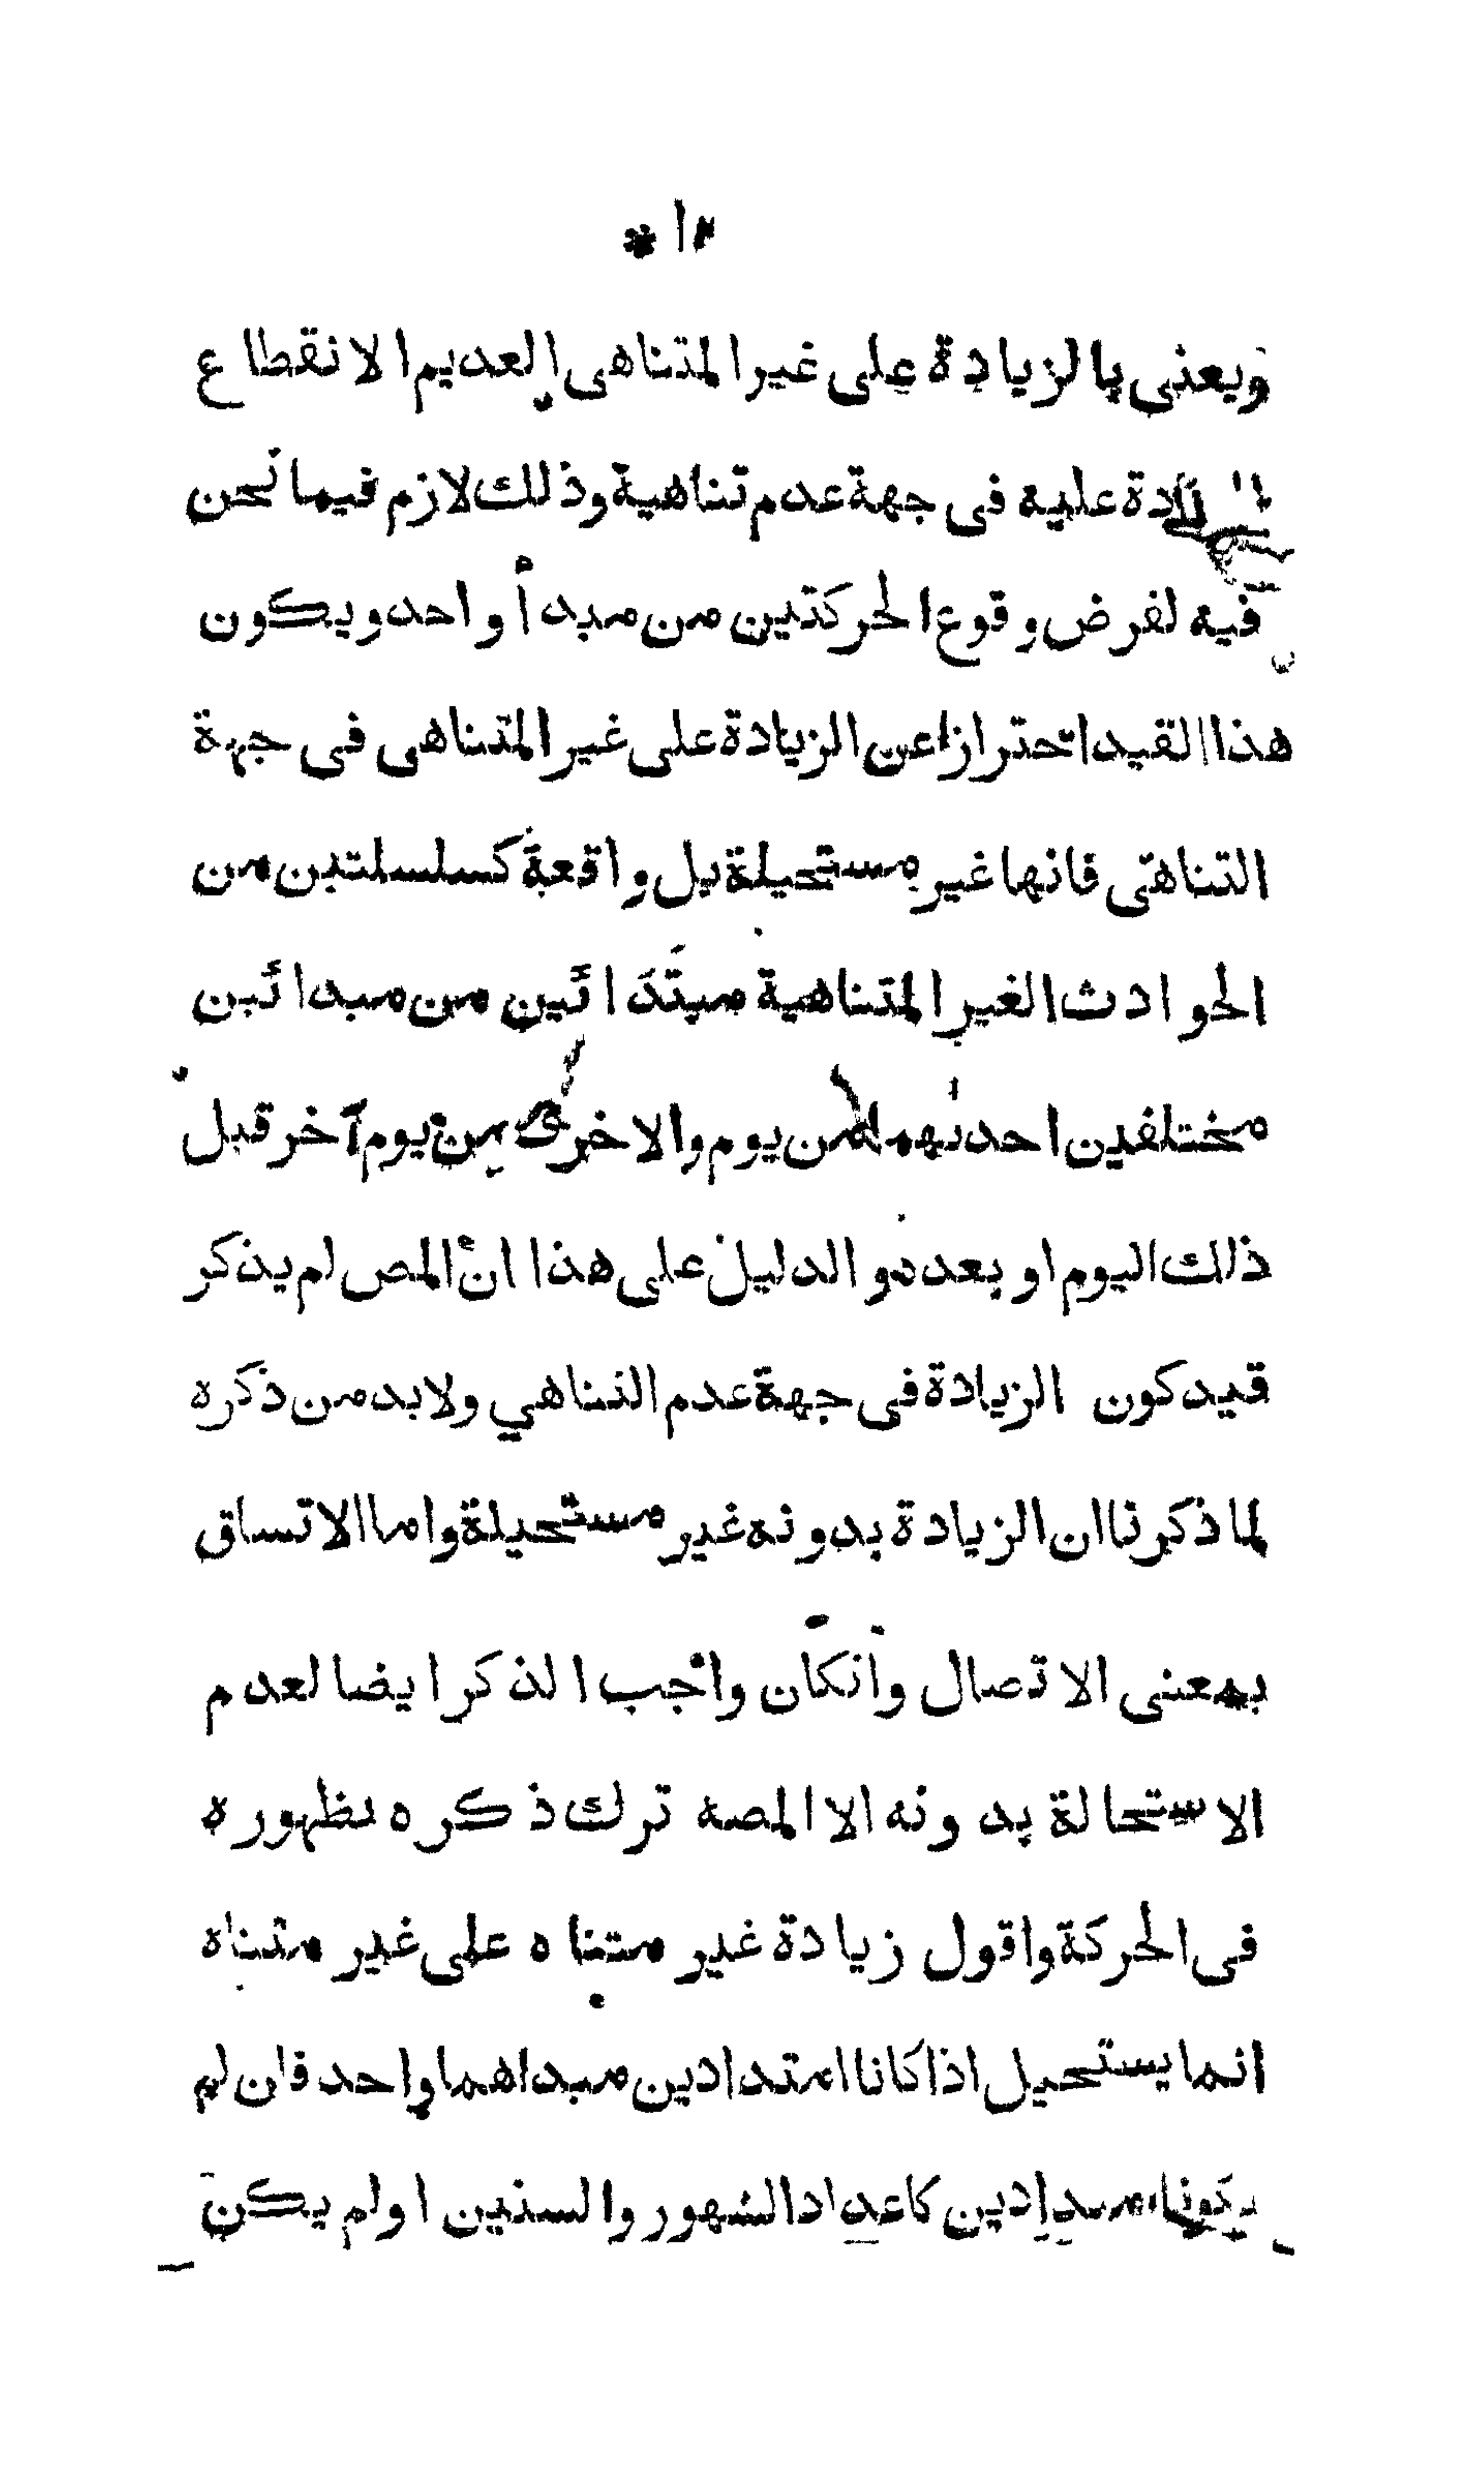 ويعنى بالزيادة على غير المتناهى العديم الانقطاع
الزيادة عليه فى جهة عدم تناهية وذلك لازم فيما نحن
فيه لفرض وقوع الحركتين من مبدأ واحد ويكون
هذا القيد احترازا عن الزيادة على غير المتناهى فى جهة
التناهى فانها غير مستحيلة بل واقعة كسلسلتين من
الحوادث الغير المتناهية مبتدائين من مبدائين
مختلفين احدٰىهما من يوم والاخرى من يوم آخر قبل
ذلك اليوم او بعده و الدليل على هذا ان المص لم يذكر
قيد كون الزيادة فى جهة عدم التناهي ولابد من ذكره
لما ذكرنا ان الزيادة بدونه غير مستحيلة واما الاتساق
بمعنى الاتصال وانكان واجب الذكر ايضا لعدم
الاستحالة بدونه الا المصه ترك ذكره لظهوره
فى الحركة واقول زيادة غير متناه على غير متناه
انما يستحيل اذا كانا امتدادين مبداهما واحد فان لم
يكونا امتدادين كاعداد الشهور والسنين او لم يكن